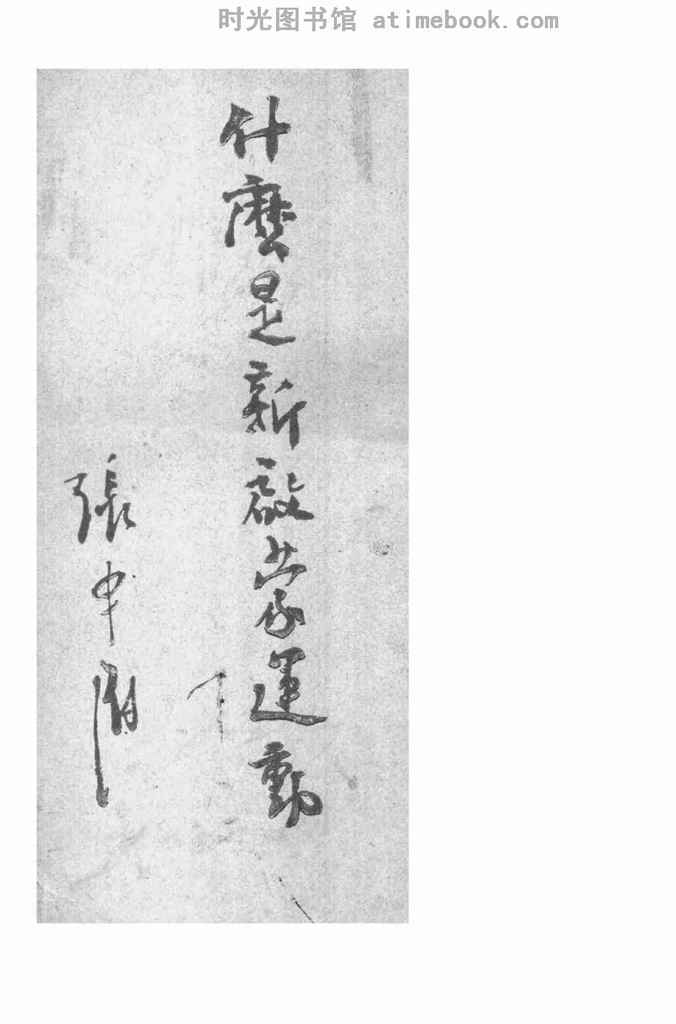 时光图书馆 atimebook.com
什麼是新啟蒙運動
張申府